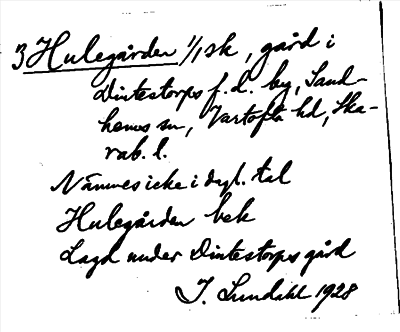 3 Hulegården 1/1 sk, gård i
Dintestorps f. d. by, Sand-
hems sn, Vartofta hd, Ska-
rab. l.
Nämnes icke i dagl. tal
Hulegården bek
Lagd under Dintestorps gård
I. Lundahl 1928